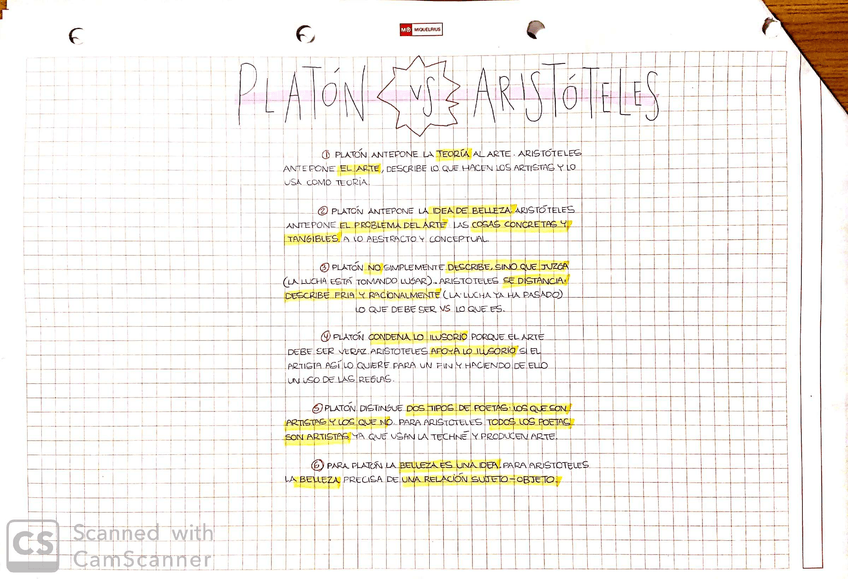 MR MIQUELRIUS
PLATÓN VS ARISTÓTELES
① PLATÓN ANTEPONE LA TEORÍA AL ARTE. ARISTÓTELES
ANTEPONE EL ARTE, DESCRIBE LO QUE HACEN LOS ARTISTAS Y LO
USA COMO TEORÍA.
② PLATÓN ANTEPONE LA IDEA DE BELLEZA ARISTÓTELES
ANTEPONE EL PROBLEMA DEL ARTE LAS COSAS CONCRETAS Y
TANGIBLES A LO ABSTRACTO Y CONCEPTUAL.
③ PLATÓN NO SIMPLEMENTE DESCRIBE, SINO QUE JUZGA
(LA LUCHA ESTÁ TOMANDO LUGAR). ARISTÓTELES SE DISTANCIA,
DESCRIBE FRIA Y RACIONALMENTE (LA LUCHA YA HA PASADO)
LO QUE DEBE SER VS LO QUE ES.
④ PLATÓN CONDENA LO ILUSORIO PORQUE EL ARTE
DEBE SER VERAZ ARISTÓTELES APOYA LO ILUSORIO SI EL
ARTISTA ASÍ LO QUIERE PARA UN FIN Y HACIENDO DE ELLO
UN USO DE LAS REGLAS.
⑤ PLATÓN DISTINGUE DOS TIPOS DE POETAS: LOS QUE SON
ARTISTAS Y LOS QUE NO. PARA ARISTÓTELES TODOS LOS POETAS
SON ARTISTAS YA QUE USAN LA TECHNÉ Y PRODUCEN ARTE.
⑥ PARA PLATÓN LA BELLEZA ES UNA IDEA. PARA ARISTÓTELES
LA BELLEZA PRECISA DE UNA RELACIÓN SUJETO-OBJETO.
CS Scanned with
CamScanner